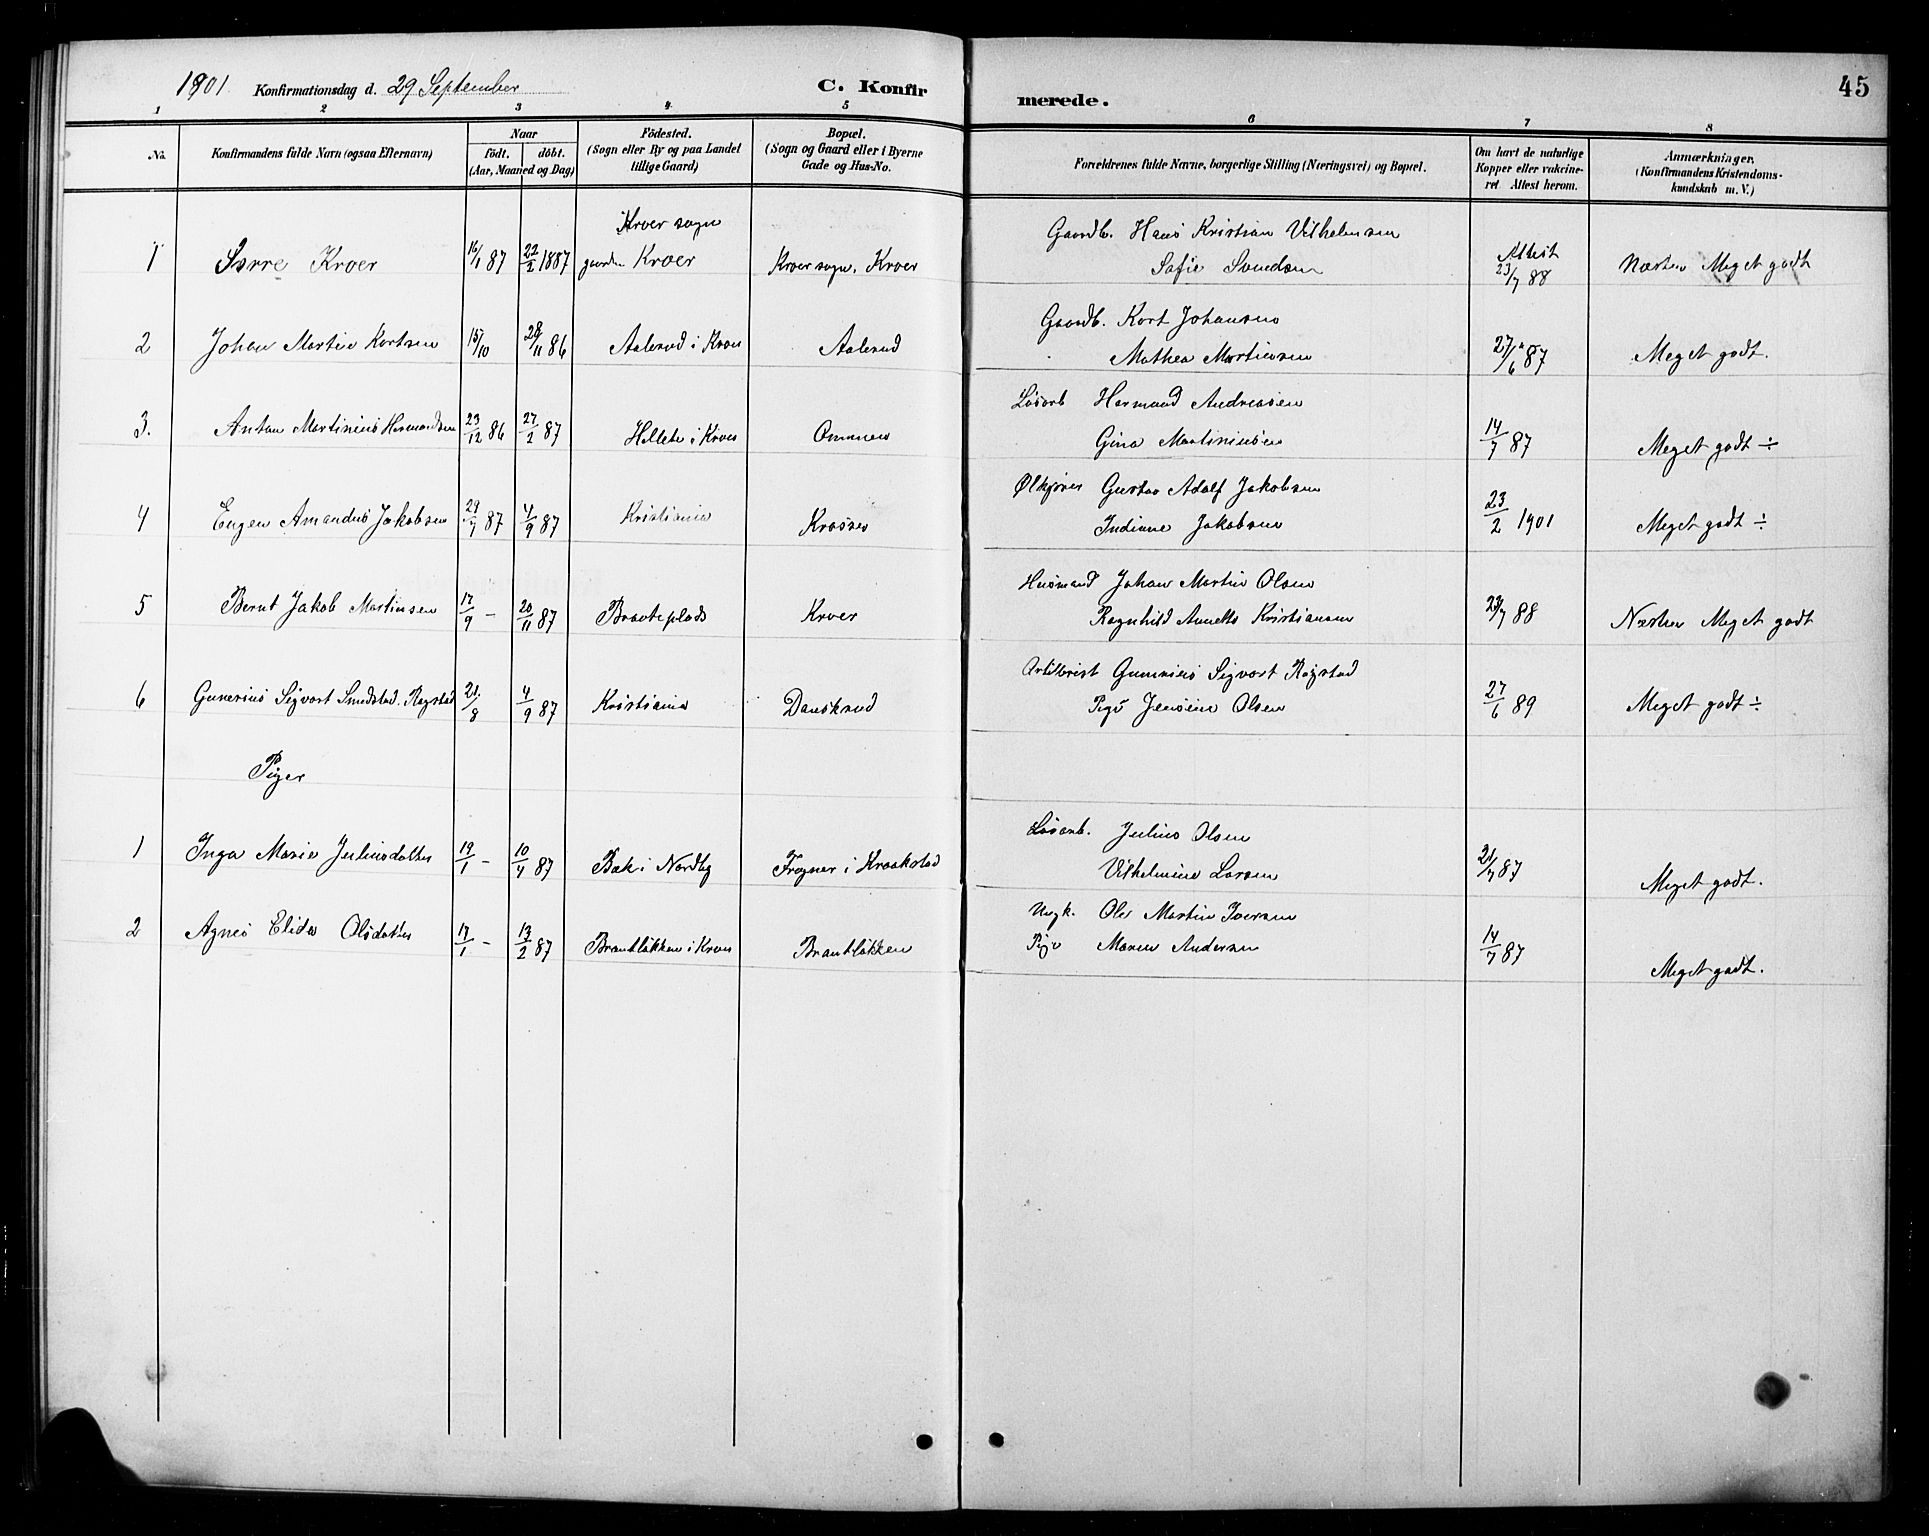 1901. Konfirmationsdag d. 29 September C. Konfirmerede. 45
1 2 3 4 5 6 7 8
No. Konfirmandens fulde Navn (ogsaa Efternavn) Naar födt. döbt. (Aar, Maaned og Dag) Födested. (Sogn eller By og paa Landet tillige Gaard) Bopæl. (Sogn og Gaard eller i Byerne Gade og Hus-No.
Forældrenes fulde Navne, borgerlige Stilling (Næringsvei) og Bopæl. Om havt de naturlige Kopper eller vakcineret Attest herom. Anmærkninger, (Konfirmandens Kristendomskundskab m. V.)
Kroer sogn Gaardb. Hans Kristian Vilhelmsen
1 Sverre Kroer 16/1 87 22/2 1887 gaarden Kroer Kroer sogn, Kroer Sofie Svendsen Attest 23/7 88 Næsten Meget godt
Gaardb. Kort Johansen
2 Johan Martin Kortsen 15/10 28/11 86 Aalerud i Kroer Aalerud Mathea Martinsen 27/6 87 Meget godt.
Løsarb Hermand Andreasen
3. Anton Martinius Hermandsen 23/12 86 27/2 87 i Kroer Gina Martiniusen 14/7 87 Meget godt ÷
Ølkjører Gustav Adolf Jakobsen
4 Eugen Amandus Jakobsen 29/7 87 4/9 87 Kristiania Indiane Jakobsen 23/2 1901 Meget godt ÷
Husmand Johan Martin Olsen
5 Bernt Jakob Martinsen 17/9 - 20/11 87 Brauteplads Kroer Ragnhild Annette Kristiansen 23/7 88 Næsten Meget godt
Artillerist Gunerius Sigvart Røgstad
6 Gunerius Sigvart Smedstad Røgstad 21/8 4/9 87 Kristiania Danskerud Pige Jensine Olsen 27/6 89 Meget godt ÷
Piger
Løsarb. Julius Olsen
1 Inga Marie Juliusdatter 19/1 - 10/4 87 Bak i Nordby Frogner i Kraakstad Vilhelmine Larsen 21/7 87 Meget godt.
Ungk. Ole Martin Iversen
2 Agnes Elida Olsdatter 17/1 - 13/2 87 Brautløkken i Kroer Brautløkken Pige Maren Andersen 14/7 87 Meget godt.